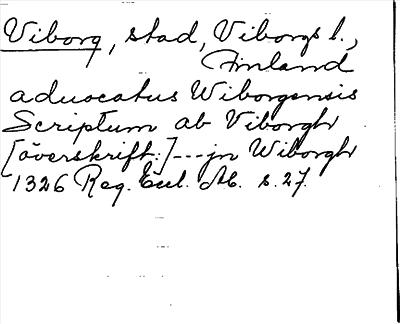 Viborg, stad, Viborgs l.,
Finland
aduocatus Wiborgensis
Scriptum ab Viborgh
[överskrift:]---jn Wiborgh
1326 Reg. Eccl. Ab. s. 27.